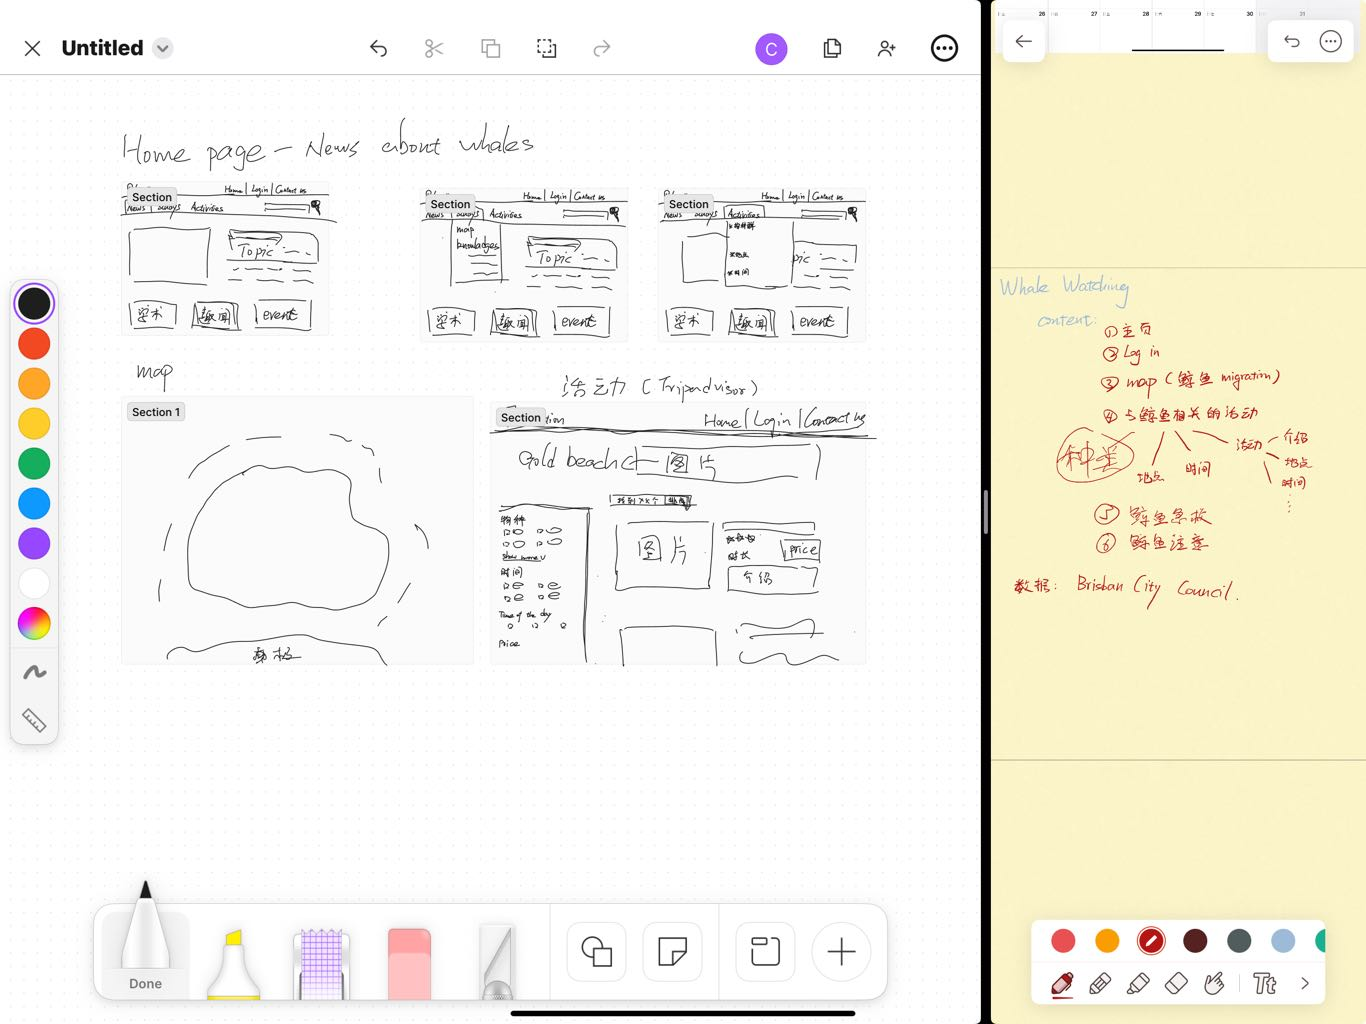 Untitled
C
Home page - News about whales
Section
Home | Login | Contact us
News
Activities
Topic
学术
趣闻
event
Section
Home | Login | Contact us
News
Activities
map
knowladges
Topic
学术
趣闻
event
Section
Home | Login | Contact us
News
Activities
pic
学术
趣闻
event
map
Section 1
南极
活动 (Tripadvisor)
Section
tion
Home | Login | Contact us
Gold beach
图片
物种
show more
时间
Time of the day
Price
图片
时长
price
介绍
Done
26
27
28
29
30
31
Whale Watching
content:
① 主页
② Log in
③ map (鲸鱼 migration)
④ 与鲸鱼相关的活动
种类
地点
时间
活动
介绍
地点
时间
⑤ 鲸鱼急救
⑥ 鲸鱼注意
数据: Brisban City Council.
Tt